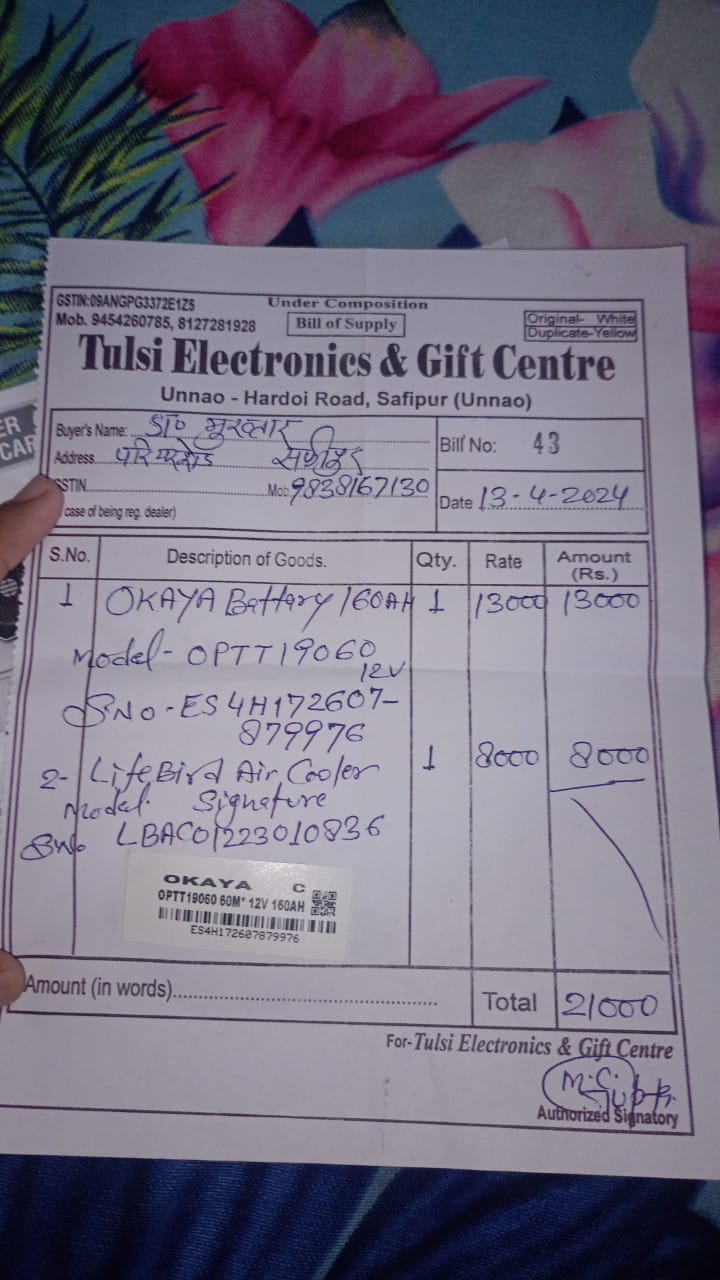 GSTIN:09ANGPG3372E1Z5 Under Composition
Mob. 9454260785, 8127281928 Bill of Supply Original- White
Duplicate-Yellow
Tulsi Electronics & Gift Centre
Unnao - Hardoi Road, Safipur (Unnao)
Buyer's Name: डा० मुख्तार
Address
GSTIN Mob 9838167130
case of being reg. dealer)
Bill No: 43
Date 13-4-2024
S.No. Description of Goods. Qty. Rate Amount (Rs.)
1 OKAYA Battary 160AH 1 13000 13000
Model- OPTT19060
12V
SNO-ES4H172607-
879976
2- LifeBird Air Cooler 1 8000 8000
Model. Signature
SNo LBACO1223010836
OKAYA C
OPTT19060 60M* 12V 160AH
ES4H172607879976
Amount (in words)
Total 21000
For-Tulsi Electronics & Gift Centre
M.C. Gupta
Authorized Signatory
ER
CAR